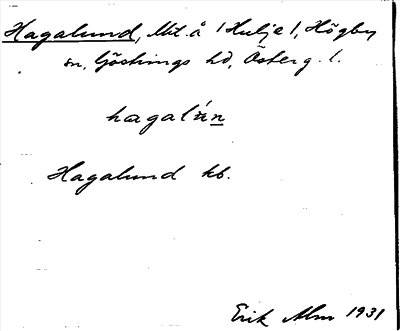 Hagalund, Mt. å (Hulje), Högby
sn, Göstrings hd, Österg. l.
hagalún
Hagalund kb.
Erik Alm 1931